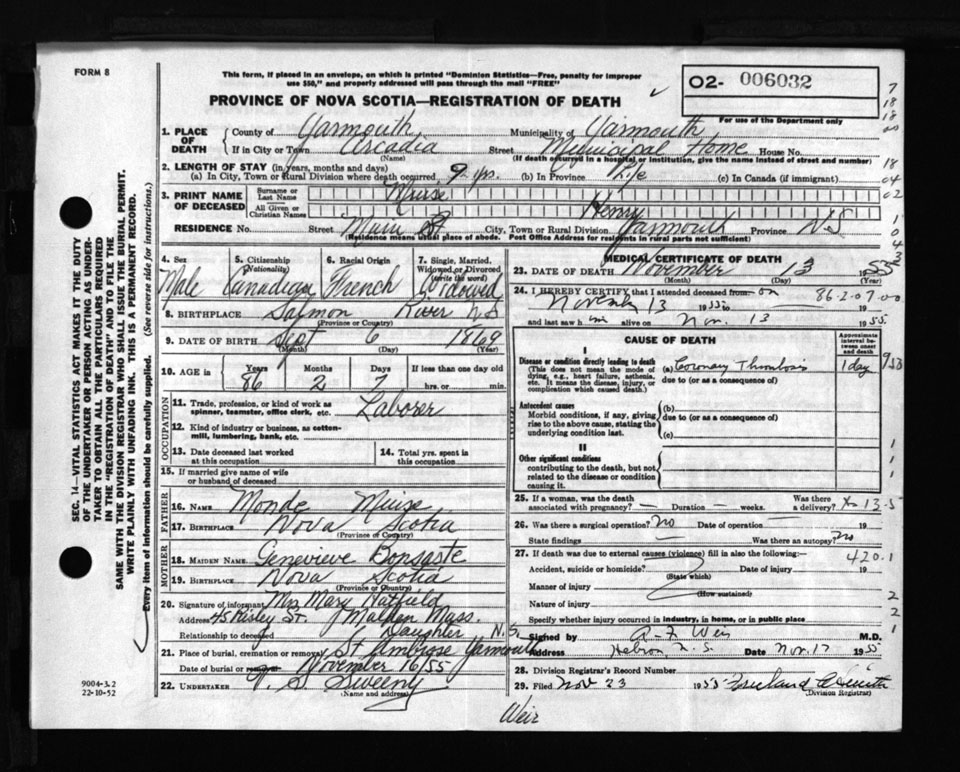 FORM 8
This form, if placed in an envelope, on which is printed "Dominion Statistics—Free, penalty for improper
use $50," and properly addressed will pass through the mail "FREE"
O2- 006032
For use of the Department only
PROVINCE OF NOVA SCOTIA—REGISTRATION OF DEATH
1. PLACE OF DEATH County of Yarmouth Municipality of Yarmouth
If in City or Town Arcadia Street Municipal Home House No.
(Name) (If death occurred in a hospital or institution, give the name instead of street and number)
2. LENGTH OF STAY (in years, months and days)
(a) In City, Town or Rural Division where death occurred 9 yrs. (b) In Province Life (c) In Canada (if immigrant)
3. PRINT NAME OF DECEASED Surname or Last Name Muise
All Given or Christian Names Henry
RESIDENCE No. Street Main St City, Town or Rural Division Yarmouth Province N.S
(Residence means usual place of abode. Post Office Address for residents in rural parts not sufficient)
4. Sex 5. Citizenship (Nationality) 6. Racial Origin 7. Single, Married, Widowed or Divorced (write the word)
Male Canadian French Widowed
8. BIRTHPLACE Salmon River N.S
(Province or Country)
9. DATE OF BIRTH Sept 6 1869
(Month) (Day) (Year)
10. AGE in Years Months Days If less than one day old
86 2 7 hrs. or min.
OCCUPATION
11. Trade, profession, or kind of work as
spinner, teamster, office clerk, etc. Laborer
12. Kind of industry or business, as cotton-
mill, lumbering, bank, etc.
13. Date deceased last worked
at this occupation
14. Total yrs. spent in
this occupation
15. If married give name of wife
or husband of deceased
FATHER
16. Name Monde Muise
17. Birthplace Nova Scotia
(Province or Country)
MOTHER
18. Maiden Name Genevieve Bonsaste
19. Birthplace Nova Scotia
(Province or Country)
20. Signature of informant Mrs Mary Hatfield
Address 45 Risley St. Malden Mass.
Relationship to deceased Daughter
21. Place of burial, cremation or removal St Ambrose Yarmouth N.S.
Date of burial or removal November 16/55
22. UNDERTAKER V. S. Sweeny
(Name and address)
MEDICAL CERTIFICATE OF DEATH
23. DATE OF DEATH November 13 1955
(Month) (Day) (Year)
24. I HEREBY CERTIFY that I attended deceased from on
November 13 1955 to 19
and last saw him alive on Nov. 13 1955.
86-2-07-00
CAUSE OF DEATH
Approximate interval between onset and death
I
Disease or condition directly leading to death
(This does not mean the mode of
dying, e.g., heart failure, asthenia,
etc. It means the disease, injury, or
complication which caused death.)
(a) Coronary Thrombosis 1 day
due to (or as a consequence of)
Antecedent causes
Morbid conditions, if any, giving
rise to the above cause, stating the
underlying condition last.
(b)
due to (or as a consequence of)
(c)
II
Other significant conditions
contributing to the death, but not
related to the disease or condition
causing it.
25. If a woman, was the death
associated with pregnancy? — Duration — weeks. Was there a delivery?
26. Was there a surgical operation? No Date of operation
State findings Was there an autopsy? No
27. If death was due to external causes (violence) fill in also the following:—
420.1
Accident, suicide or homicide? Date of injury 19
(State which)
Manner of injury
(How sustained)
Nature of injury
Specify whether injury occurred in industry, in home, or in public place
Signed by A. F. Weir M.D.
Address Hebron, N.S. Date Nov. 17 1955
28. Division Registrar's Record Number
29. Filed Nov 23 1955
(Division Registrar)
Weir
SEC. 14—VITAL STATISTICS ACT MAKES IT THE DUTY
OF THE UNDERTAKER OR PERSON ACTING AS UNDER-
TAKER TO OBTAIN ALL THE PARTICULARS REQUIRED
IN THE "REGISTRATION OF DEATH" AND TO FILE THE
SAME WITH THE DIVISION REGISTRAR WHO SHALL ISSUE THE BURIAL PERMIT.
WRITE PLAINLY WITH UNFADING INK. THIS IS A PERMANENT RECORD.
Every item of information should be carefully supplied. (See reverse side for instructions.)
9004-3.2
22-10-52